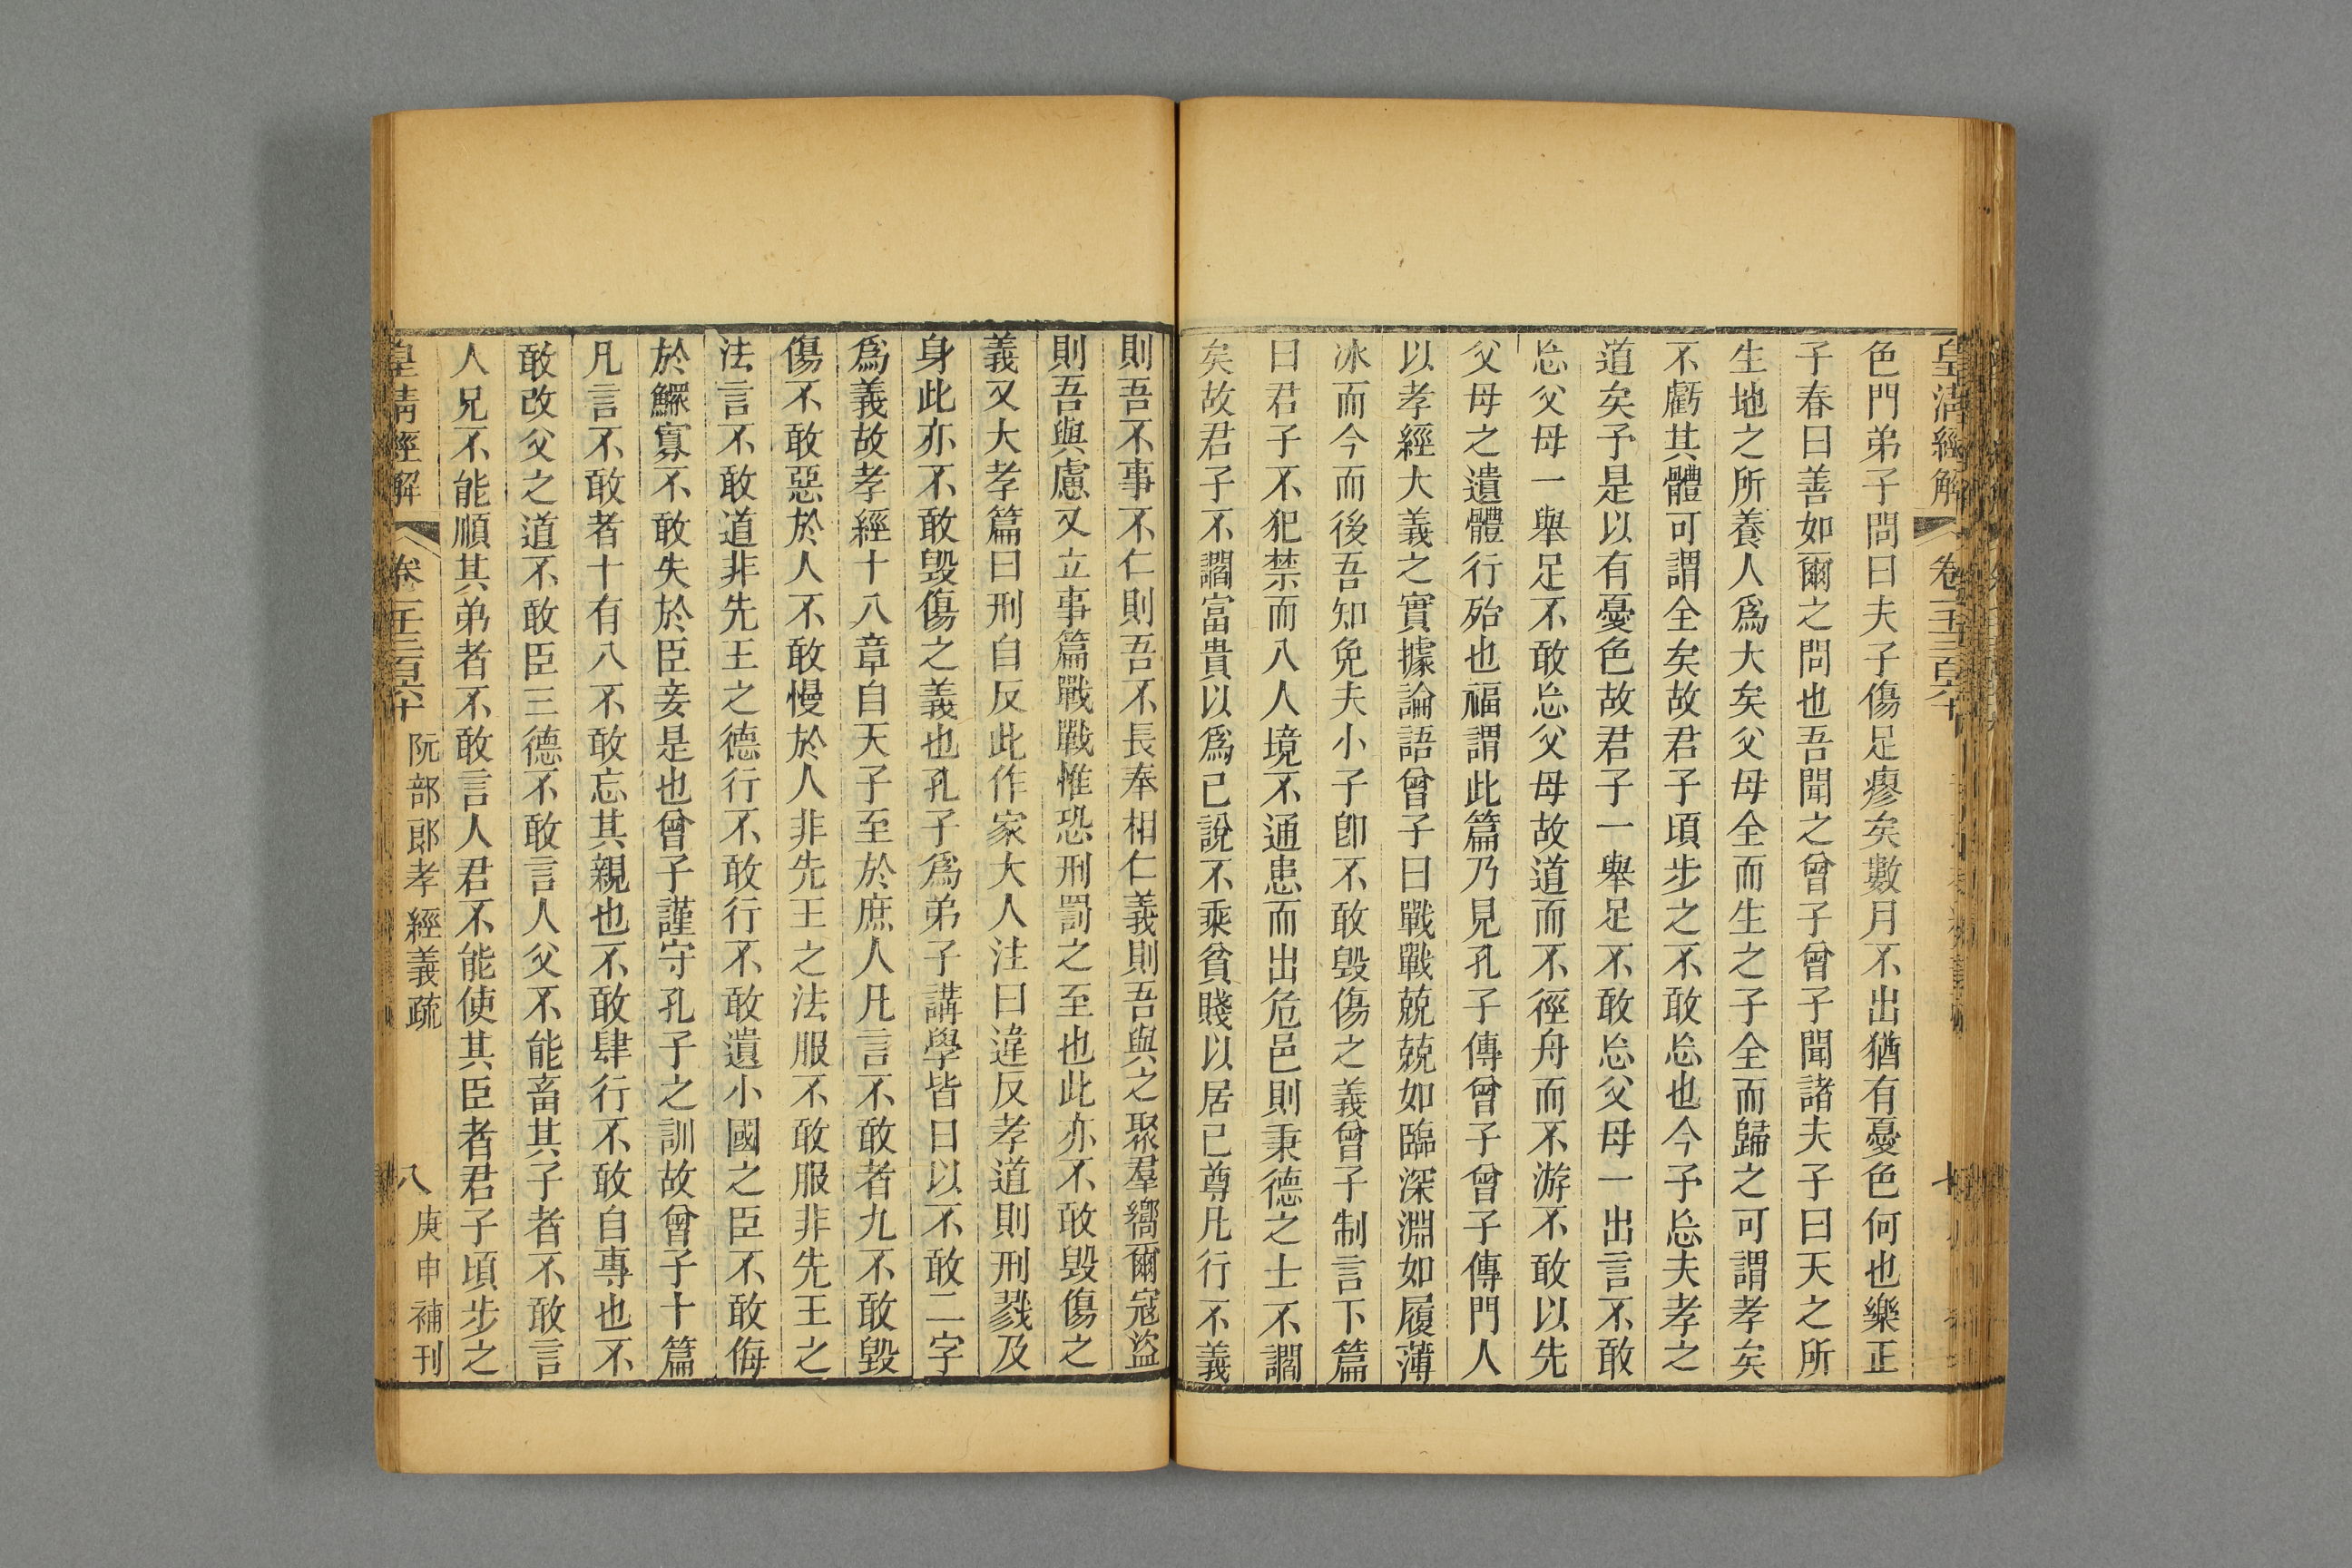 皇清經解 卷一千三百六十
色門弟子問曰夫子傷足瘳矣數月不出猶有憂色何也樂正
子春曰善如爾之問也吾聞之曾子曾子聞諸夫子曰天之所
生地之所養人爲大矣父母全而生之子全而歸之可謂孝矣
不虧其體可謂全矣故君子頃步之不敢忘也今予忘夫孝之
道矣予是以有憂色故君子一舉足不敢忘父母一出言不敢
忘父母一舉足不敢忘父母故道而不徑舟而不游不敢以先
父母之遺體行殆也福謂此篇乃見孔子傳曾子曾子傳門人
以孝經大義之實據論語曾子曰戰戰兢兢如臨深淵如履薄
冰而今而後吾知免夫小子卽不敢毀傷之義曾子制言下篇
曰君子不犯禁而入人境不通患而出危邑則秉德之士不讇
矣故君子不讇富貴以爲己說不乘貧賤以居己尊凡行不義
則吾不事不仁則吾不長奉相仁義則吾與之聚羣嚮爾寇盜
則吾與慮又立事篇戰戰惟恐刑罰之至也此亦不敢毀傷之
義又大孝篇曰刑自反此作家大人注曰違反孝道則刑戮及
身此亦不敢毀傷之義也孔子爲弟子講學皆曰以不敢二字
爲義故孝經十八章自天子至於庶人凡言不敢者九不敢毀
傷不敢惡於人不敢慢於人非先王之法服不敢服非先王之
法言不敢道非先王之德行不敢行不敢遺小國之臣不敢侮
於鰥寡不敢失於臣妾是也曾子謹守孔子之訓故曾子十篇
凡言不敢者十有八不敢忘其親也不敢肆行不敢自專也不
敢改父之道不敢臣三德不敢言人父不能畜其子者不敢言
人兄不能順其弟者不敢言人君不能使其臣者君子頃步之
皇清經解 卷一千三百六十 阮部郎孝經義疏 八 庚申補刊